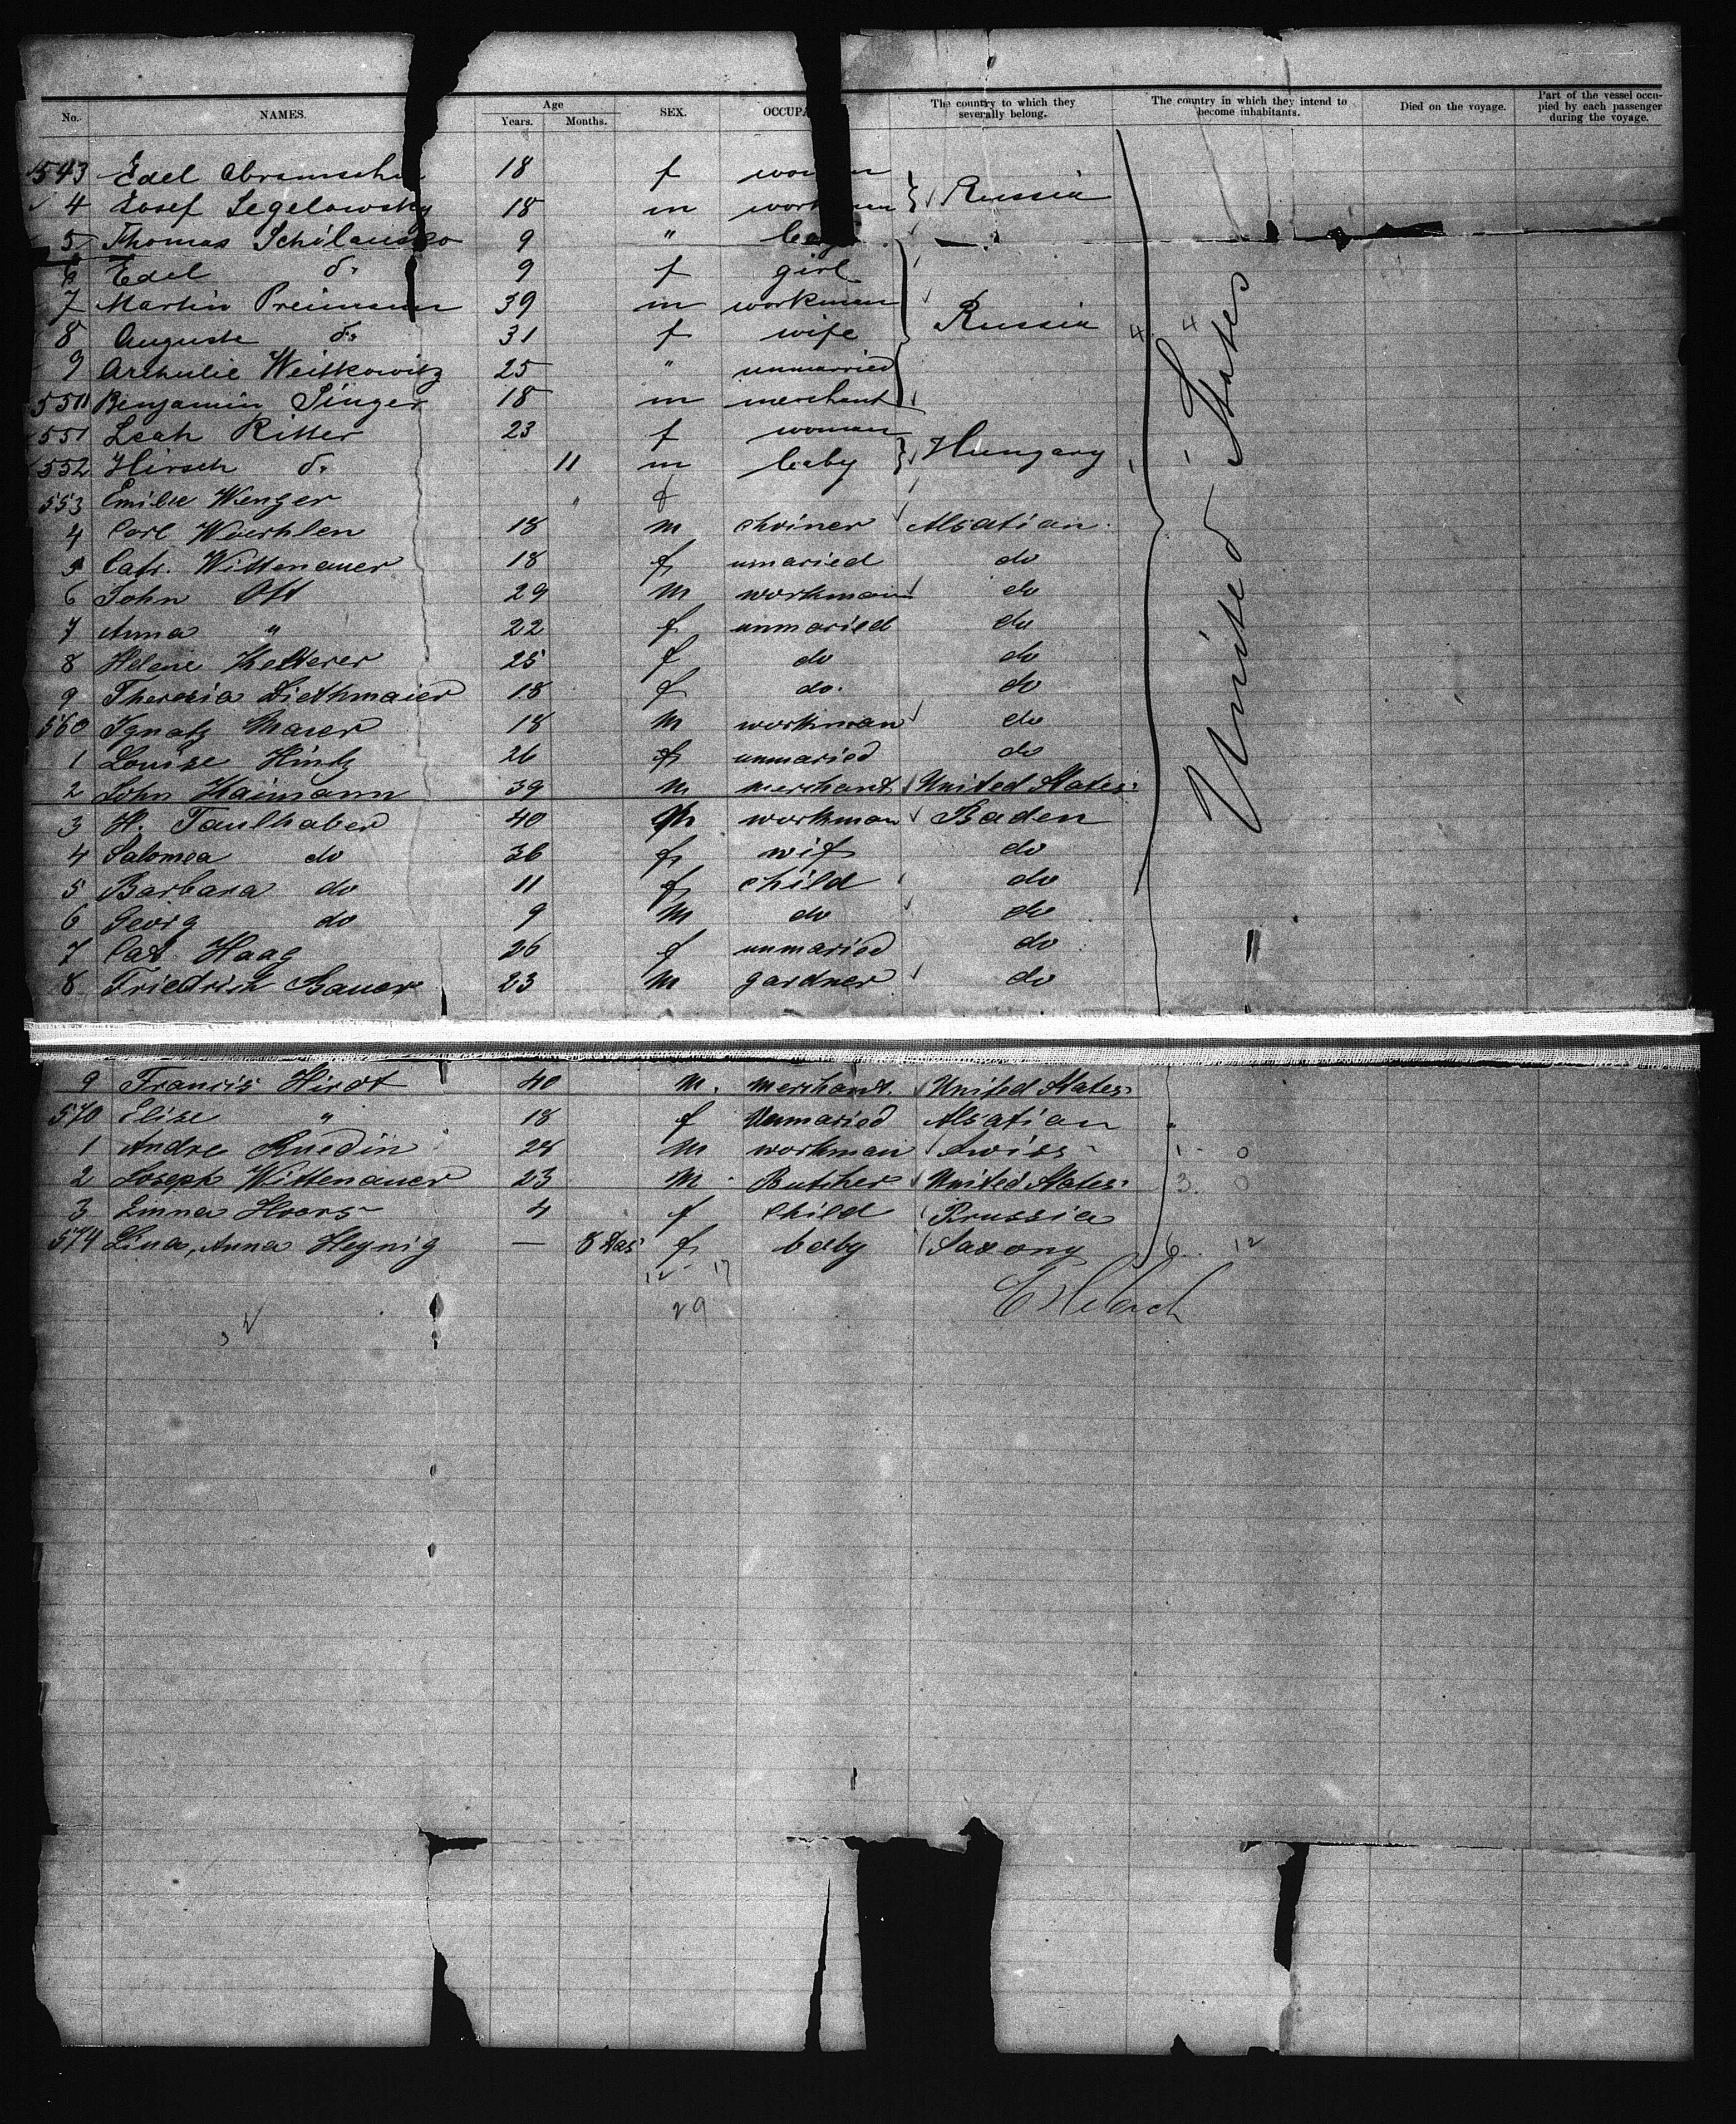 No. NAMES. Age Years. Months. SEX. OCCUPA The country to which they severally belong. The country in which they intend to become inhabitants. Died on the voyage. Part of the vessel occupied by each passenger during the voyage.
543 Edel 18 f
4 Josef Segelowsky 18 m workman Russia
5 Thomas 9 " boy
6 Edel do 9 f girl
7 Martin 39 m workman
8 Auguste do 31 f wife Russia 4 4
9 Weitkowitz 25 " unmarried
550 Benjamin Singer 18 m merchant
551 Leah Ritter 23 f woman
552 Hirsch do 11 m baby Hungary 1 1
553 Emilie Wenger " f
4 Carl Woerhlen 18 m Alsatian
5 Catr. Wittenauer 18 f unmaried do
6 John Ott 29 M workman do
7 Anna " 22 f unmaried do
8 Helene Ketterer 25 f do do
9 Theresia Diethmaier 18 f do. do
560 Ignatz Maier 18 M workman do
1 Louise Hintz 26 f unmaried do
2 John Haimann 39 M merchant United States
3 H. Faulhaber 40 m workman Baden
4 Salomea do 36 f wif do
5 Barbara do 11 f child do
6 Georg do 9 M do do
7 Cat Haag 26 f unmaried do
8 Friedrich Bauer 23 M gardner do
United States
9 Francis Hirdt 40 M. merchant. United States
570 Elise " 18 f Unmaried Alsatian "
1 Andre Ruedin 28 M workman Swiss 1 - 0
2 Joseph Wittenauer 23 M Butcher United States 3. 0
3 Emma Hoors 4 f child Prussia
574 Lina, Anna Heynig — 8 Das f baby Saxony 6. 12
12 - 17
29